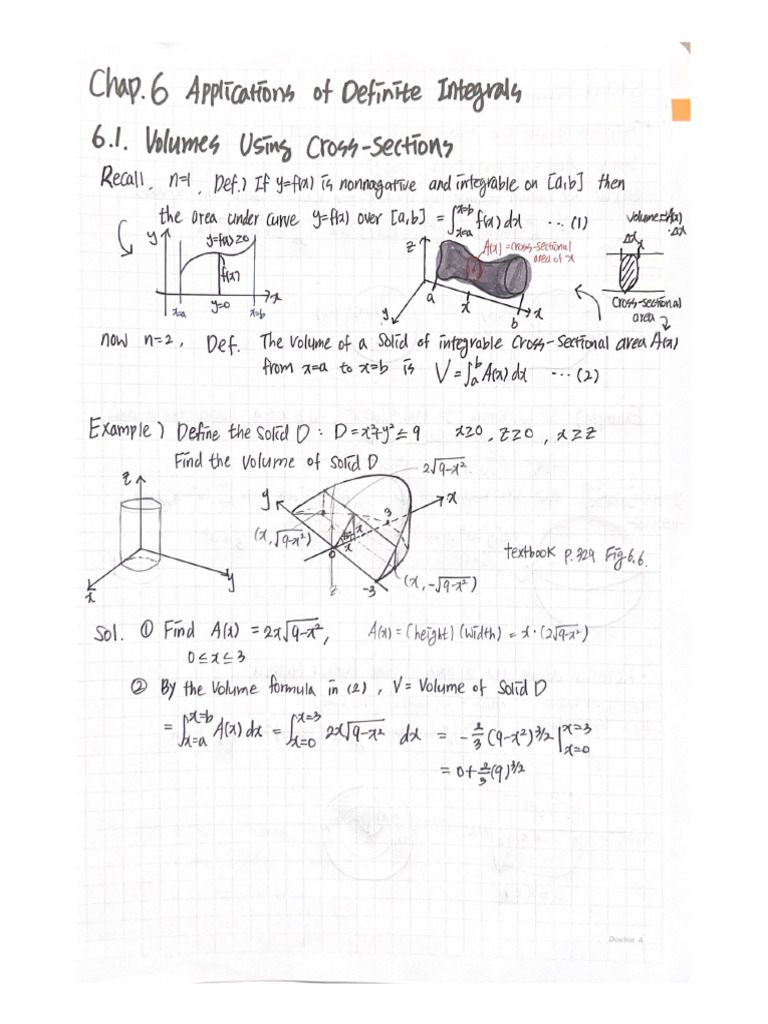 Chap.6 Applications of Definite Integrals
6.1. Volumes Using Cross-Sections
Recall, n=1, Def.) If y=f(x) is nonnagative and integrable on [a,b] then
the area under curve y=f(x) over [a,b] = ∫_{x=a}^{x=b} f(x)dx ... (1)
volume=A(x)
·Δx
Δx
y
y=f(x)≥0
f(x)
x
x=a
y=0
x=b
z
A(x)=cross-sectional
area of x
a
x
b
x
y
Cross-sectional
area
now n=2, Def. The Volume of a Solid of integrable Cross-Sectional area A(x)
from x=a to x=b is V=∫_a^b A(x)dx ... (2)
Example) Define the Solid D : D=x²+y²≤9 x≥0, z≥0, x≥z
Find the Volume of Solid D
2√9-x²
z
y
x
y
x
3
x
x
0
-3
z
(x,√9-x²)
(x,-√9-x²)
textbook p.329 Fig 6.6.
Sol. ① Find A(x) = 2x√9-x², A(x) = (height)(width) = x·(2√9-x²)
0≤x≤3
② By the Volume formula in (2), V= Volume of Solid D
= ∫_{x=a}^{x=b} A(x)dx = ∫_{x=0}^{x=3} 2x√9-x² dx = -2/3 (9-x²)^{3/2} |_{x=0}^{x=3}
= 0+2/3(9)^{3/2}
Double A